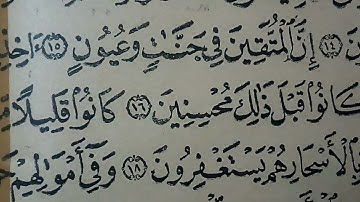 ١٤ إِنَّ ٱلْمُتَّقِينَ فِى جَنَّٰتٍ وَعُيُونٍ ١٥ ءَاخِذِ
كَانُوا۟ قَبْلَ ذَٰلِكَ مُحْسِنِينَ ١٦ كَانُوا۟ قَلِيلًا
بِٱلْأَسْحَارِ هُمْ يَسْتَغْفِرُونَ ١٨ وَفِىٓ أَمْوَٰلِهِمْ